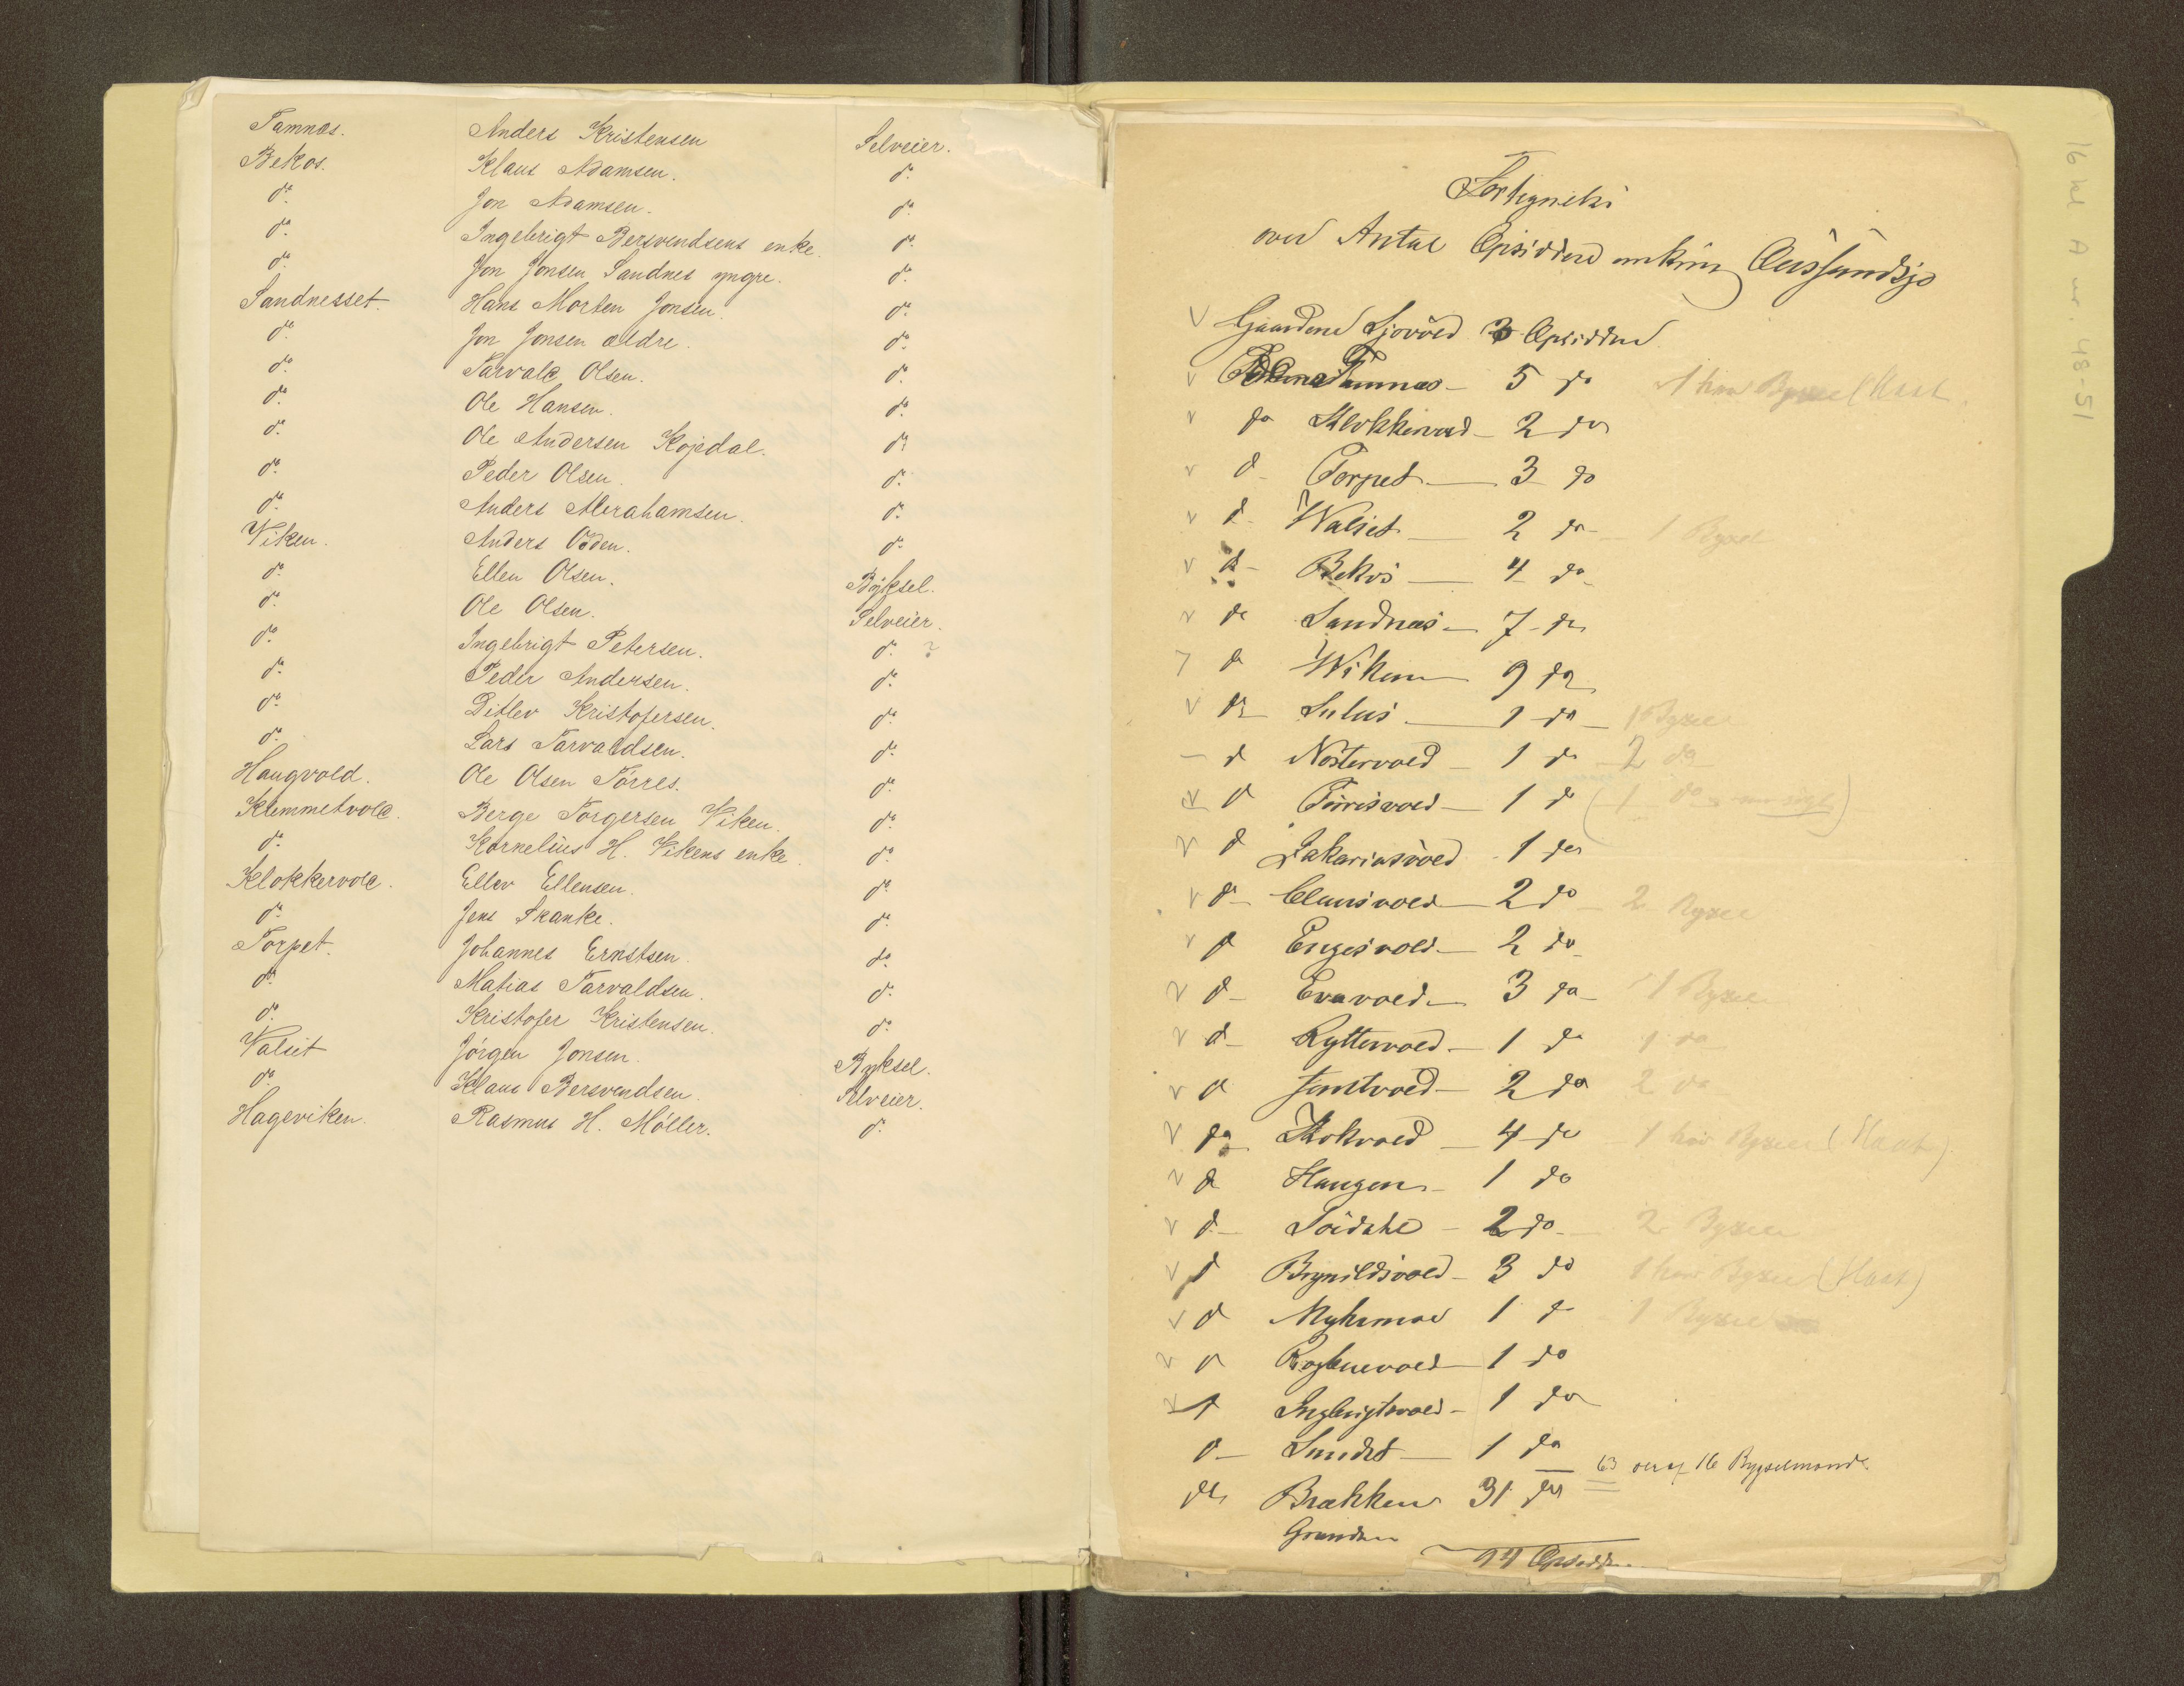 Tamnæs. Anders Kristensen Selveier.
Bekos. Klaus Adamsen. do.
do. Jon Adamsen. do.
do. Ingebrigt Bersvendsens enke. do.
do. Jon Jonsen Sandnes yngre. do.
Sandnesset. Hans Morten Jonsen. do.
do. Jon Jonsen ældre. do.
do. Tarvald Olsen. do.
do. Ole Hansen. do.
do. Ole Andersen Kojedal. do.
do. Peder Olsen. do.
do. Anders Abrahamsen. do.
Viken. Anders Odden. do.
do. Ellen Olsen. Byksel.
do. Ole Olsen. Selveier.
do. Ingebrigt Petersen. do. ?
do. Peder Andersen. do.
do. Ditlev Kristofersen. do.
do. Lars Tarvaldsen. do.
Haugvold. Ole Olsen Törres. do.
Klemmetvold. Berge Torgersen Viken. do.
do. Kornelius H. Vikens enke. do.
Klokkervold. Ellev Ellensen. do.
do. Jens Skanke. do.
Torpet. Johannes Ernstsen. do.
do. Matias Tarvaldsen. do.
do. Kristofer Kristensen. do.
Valset Jörgen Jonsen. Byksel.
do. Klaus Bersvendsen. Selveier.
Hageviken. Rasmus H. Möller. do.
Fortegnelse
over Antal Opsiddere omkring Aursundsjø
Gaardene Sjovold Opsiddere
Tamnæs - 5 do
do Klokkervold - 2 do
d - Torpet - 3 do
d - Walset - 2 do - 1 Bygsel
d - Bekos - 4 do
do Sandnæs - 7 do
d Wiken 9 do
do Sulus - 1 do - 1 Bygsel
d Nostervold - 1 do 2 do
d Törisvold - 1 d (1 do
d Zakariasvold - 1 do
d - Clausvold - 2 do - 2 Bygsel
d Engesvold - 2 do
d - Evavold - 3 do - 1 Bygsel
d - Ryttervold - 1 do 1 do
d Jemtvold - 2 do 2 do
do Kokvold - 4 do 1 har Bygsel (Slaat)
d Haugen - 1 do
d - - 2 do - 2 Bygsel
d Brynildsvold - 3 do 1 har Bygsel (Slaat)
d Myhrmoe 1 d 1 Bygsel
d - 1 do
d Ingbrigtsvold - 1 do
d - Sundet - 1 do 63 deraf 16 Bygselmænd.
do Brækken 31 do
Grenden
94 Opsidde.
16 kl A nr. 48-51